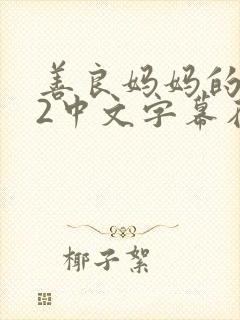 善良妈妈的
2中文字幕
椰子絮